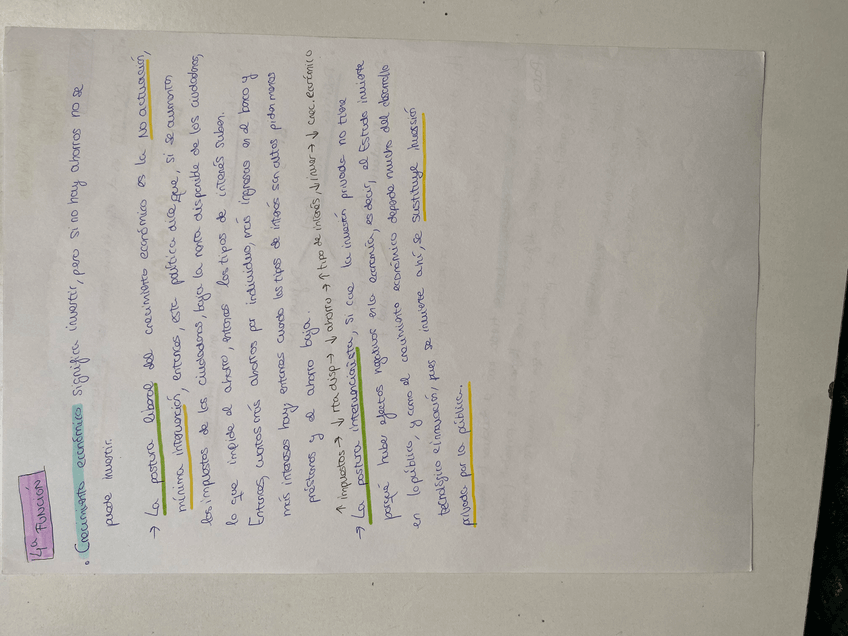 4ª FUNCIÓN
• Crecimiento económico significa invertir, pero si no hay ahorros no se
puede invertir.
→ La postura liberal del crecimiento económico es la No actuación,
mínima intervención, entonces, esta política dice que, si se aumentan
los impuestos de los ciudadanos, baja la renta disponible de los ciudadanos,
lo que impide el ahorro, entonces los tipos de interés suben.
Entonces, cuantos más ahorros por individuo, más ingresas en el banco y
más intereses hay, entonces cuando los tipos de interés son altos piden menos
préstamos y el ahorro baja.
↑ impuestos → ↓ rta disp → ↓ ahorro → ↑ tipo de interés, ↓ inver → ↓ crec. económico
→ La postura intervencionista, si cae la inversión privada no tiene
porqué haber efectos negativos en la economía, es decir, el Estado invierte
en lo público, y como el crecimiento económico depende mucho del desarrollo
tecnológico e innovación, pues se invierte ahí, se sustituye inversión
privada por la pública.